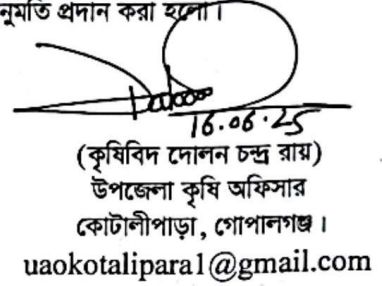 নুমতি প্রদান করা হলো।
16.06.25
(কৃষিবিদ দোলন চন্দ্র রায়)
উপজেলা কৃষি অফিসার
কোটালীপাড়া, গোপালগঞ্জ।
uaokotalipara1@gmail.com